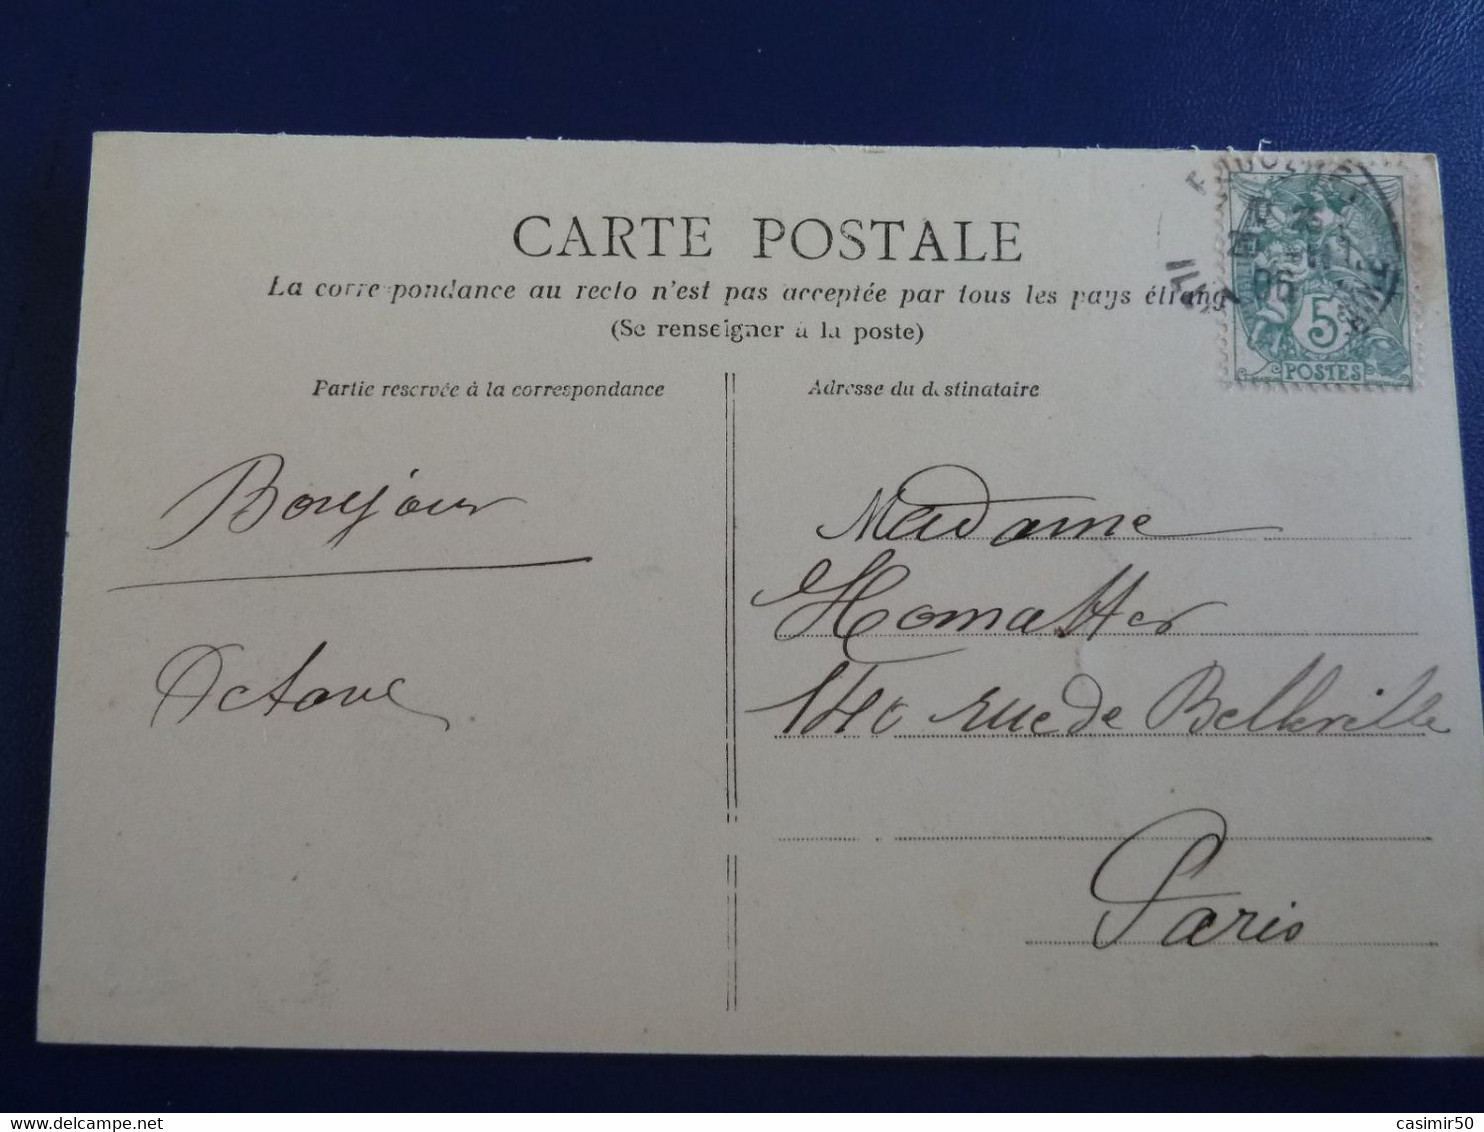 CARTE POSTALE
La correspondance au recto n'est pas acceptée par tous les pays étrang
(Se renseigner à la poste)
Partie reservée à la correspondance
Adresse du destinataire
Bonjour
Octave
Madame
Homatter
140 rue de Belleville
Paris
5
POSTES
06
casimir50